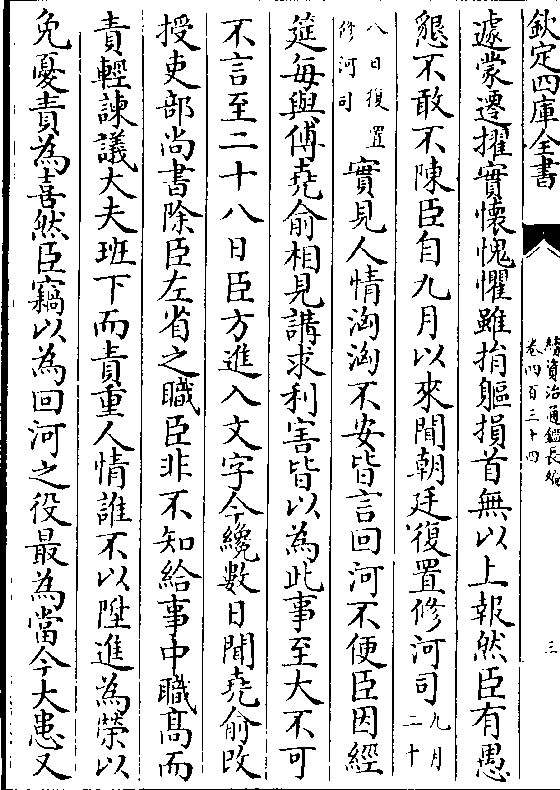 欽定四庫全書
續資治通鑑長編
卷四百三十四
三
遽蒙遷擢實懷愧懼雖捐軀損首無以上報然臣有愚
懇不敢不陳臣自九月以來聞朝廷復置修河司九月二十
八日復置修河司實見人情洶洶不安皆言回河不便臣因經
筵每與傅堯俞相見講求利害皆以為此事至大不可
不言至二十八日臣方進入文字今纔數日聞堯俞改
授吏部尚書除臣左省之職臣非不知給事中職髙而
責輕諫議大夫班下而責重人情誰不以陞進為榮以
免憂責為喜然臣竊以為回河之役最為當今大患又